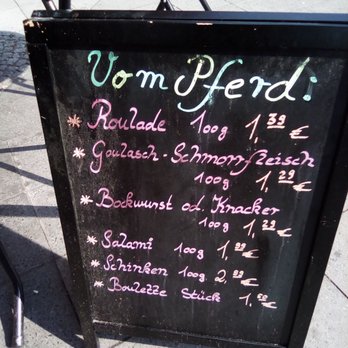 Vom Pferd:
* Roulade 100g 1,39 €
* Goulasch-Schmorrfleisch
100g 1,29 €
* Bockwurst od. Knacker
100g 1,29 €
* Salami 100g 1,99 €
* Schinken 100g 2,99 €
* Boulette Stück 1,50 €